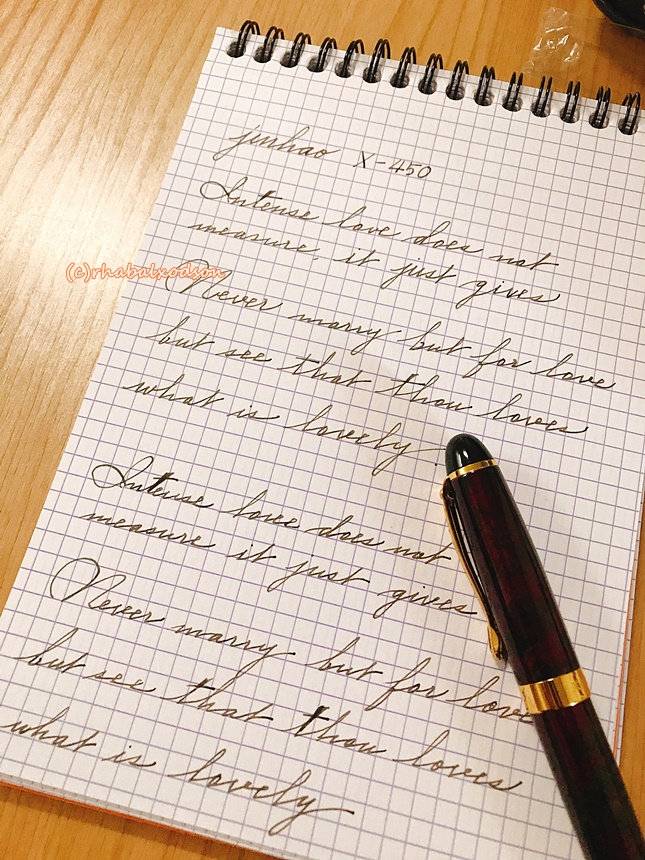 jinhao X-450
Intense love does not
measure, it just gives
(c)rhabatxodson
Never marry but for love
but see that thou loves
what is lovely
Intense love does not
measure it just gives
Never marry but for love
but see that thou loves
what is lovely